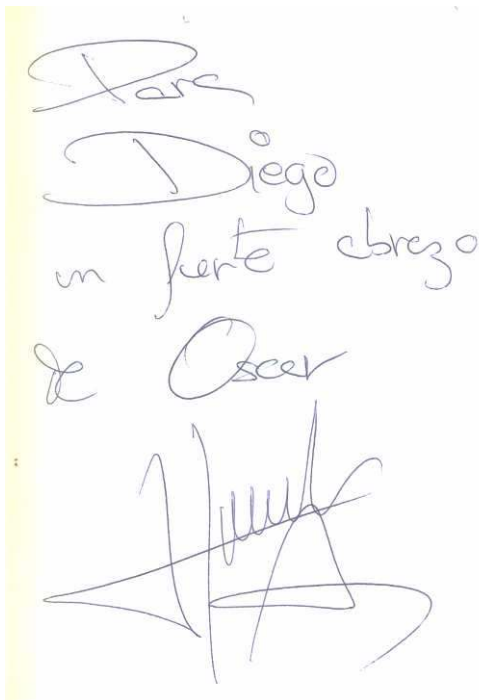 Para
Diego
un fuerte abrazo
de Oscar